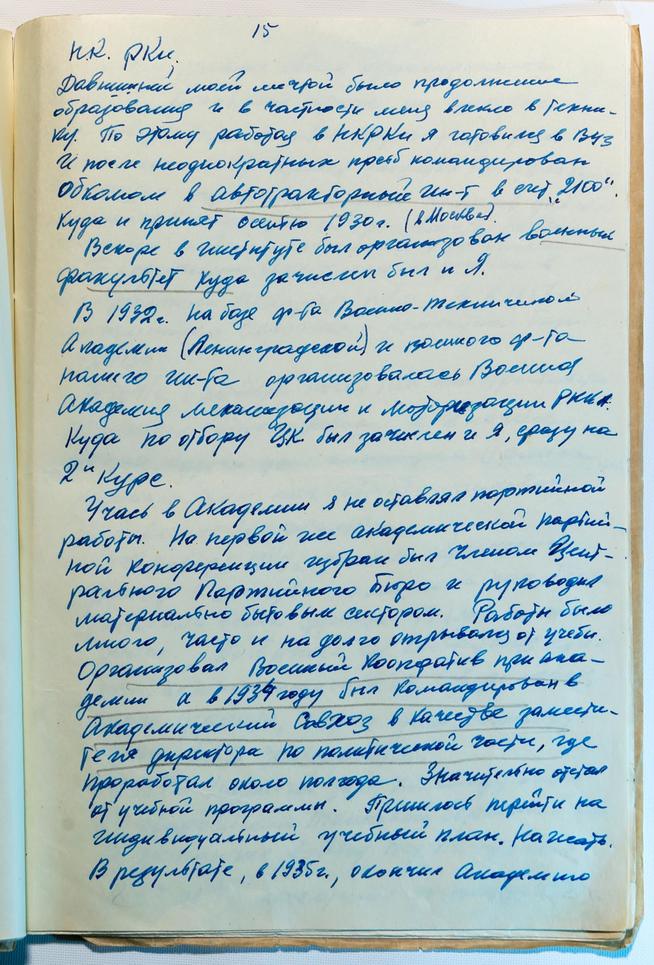 15
НК. РКИ,
Давнишней моей мечтой было продолжение
образования и в частности меня влекло в техни-
ку. По этому работая в НКРКИ я готовился в ВУЗ
И после неоднократных просьб командирован
Обкомом в автотракторный ин-т в счет „2100".
Куда и принят осенью 1930г. (в Москве).
Вскоре в институте был организован военный
факультет куда зачислен был и Я.
В 1932г. на базе ф-та Военно-технической
Академии (Ленинградской) и военного ф-та
нашего ин-та организовалась Военная
Академия механизации и моторизации РККА.
Куда по отбору ЦК был зачислен и Я, сразу на
2й курс.
Учась в Академии я не оставлял партийной
работы. На первой же академической партий-
ной конференции избран был членом Цент-
рального Партийного Бюро и руководил
материально бытовым сектором. Работы было
много, часто и на долго отрывался от учебы.
Организовал Военный Кооператив при ака-
демии и в 1934 году был командирован в
Академический Совхоз в качестве замести-
теля директора по политической части, где
проработал около полгода. Значительно отстал
от учебной программы. Пришлось перейти на
индивидуальный учебный план. Нажать.
В результате, в 1935г., окончил Академию